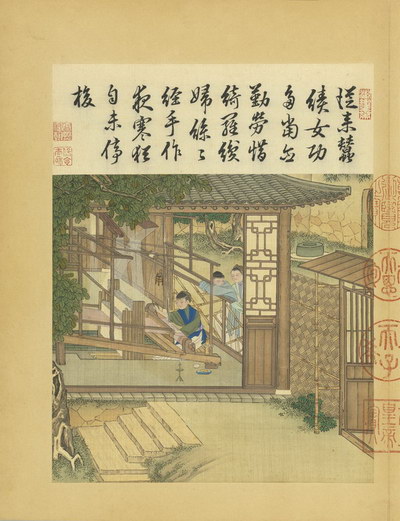 從來蠶
績女功
多當念
勤勞惜
綺羅織
婦絲〻
經手作
夜寒猶
自未停
梭
天子